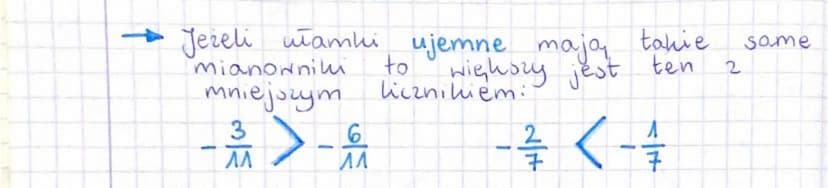 → Jeżeli ułamki ujemne mają takie same
mianowniki to większy jest ten z
mniejszym licznikiem:
-3/11 > -6/11 -2/7 < -1/7